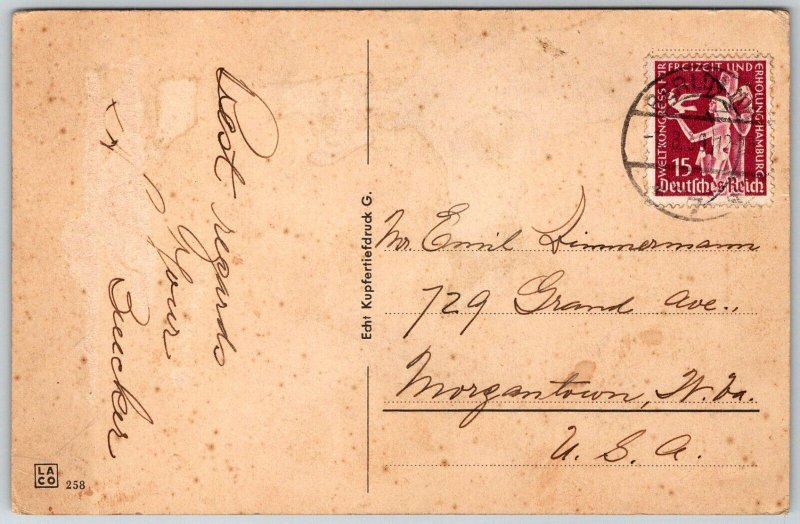 Best regards
Your
Zencker
Echt Kupfertiefdruck G.
LA
CO
258
WELTKONGRESS FÜR FREIZEIT UND ERHOLUNG HAMBURG
15
Deutsches Reich
Mr Emil Zimmermann
729 Grand Ave.,
Morgantown, W. Va.
U. S. A.